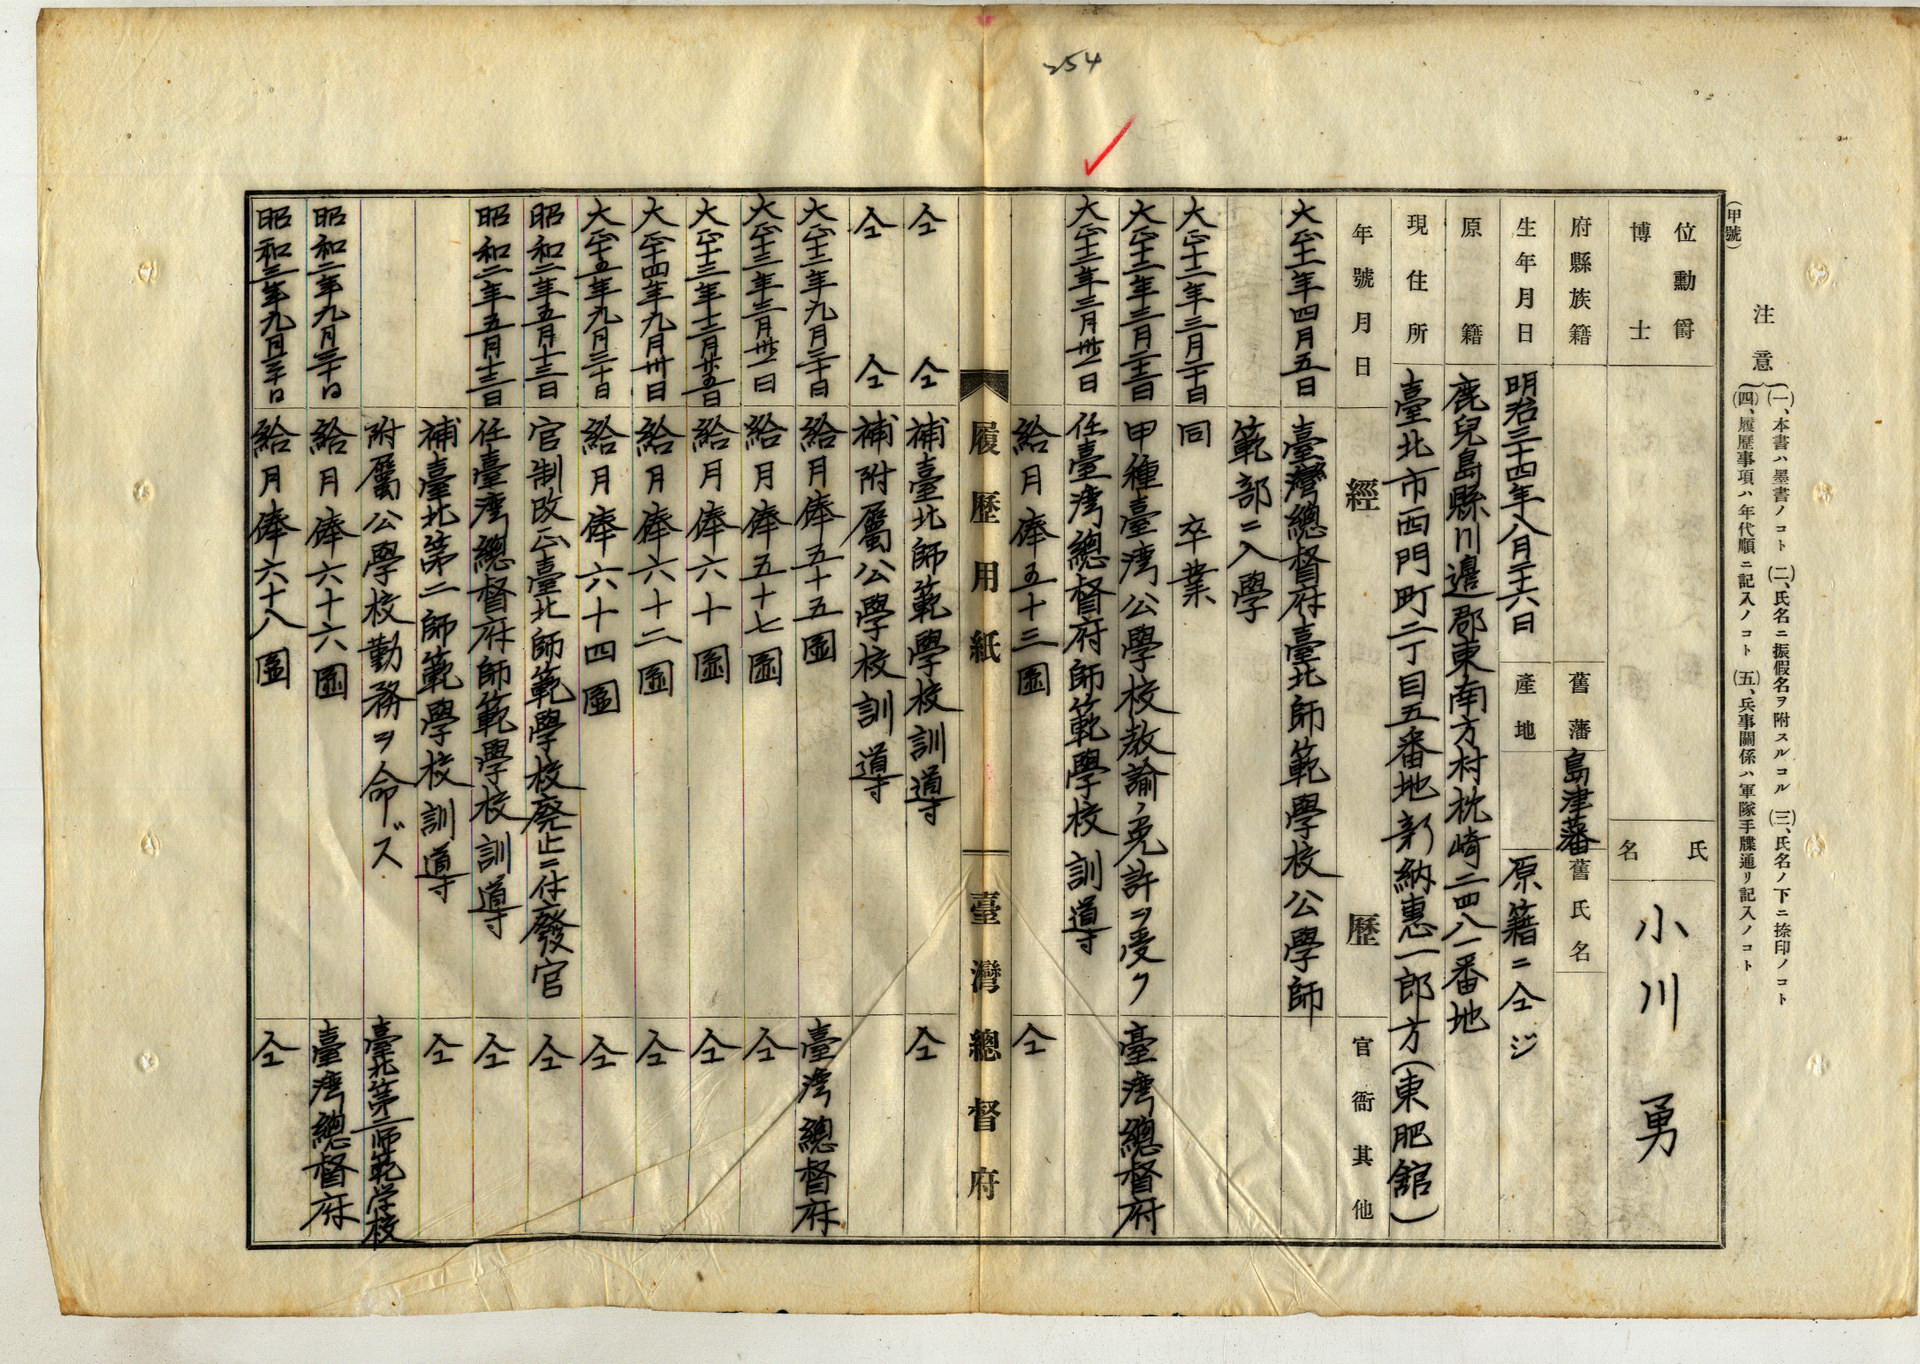 254
(甲號)
注意
(一)、本書ハ墨書ノコト (二)、氏名ニ振假名ヲ附スルコト (三)、氏名ノ下ニ捺印ノコト
(四)、履歴事項ハ年代順ニ記入ノコト (五)、兵事關係ハ軍隊手牒通リ記入ノコト
位勳爵
博士
氏名
小川 勇
府縣族籍
舊藩 島津藩
舊氏名
生年月日 明治三十四年八月二十六日
產地 原籍ニ仝ジ
原籍 鹿兒島縣川邊郡東南方村枕崎二四八一番地
現住所 臺北市西門町二丁目五番地新納惠一郎方(東肥館)
年號月日 經歷 官衙其他
大正十一年四月五日 臺灣總督府臺北師範學校公學師
範部ニ入學
大正十二年三月二十日 同 卒業
大正十二年三月二十二日 甲種臺灣公學校教諭ノ免許ヲ受ク 臺灣總督府
大正十二年三月卅一日 任臺灣總督府師範學校訓導
給月俸五十三圓 仝
履歷用紙 臺灣總督府
仝 仝 補臺北師範學校訓導 仝
仝 仝 補附屬公學校訓導
大正十二年九月三十日 給月俸五十五圓 臺灣總督府
大正十三年三月卅一日 給月俸五十七圓 仝
大正十三年十二月廿五日 給月俸六十圓 仝
大正十四年九月卅日 給月俸六十二圓 仝
大正十五年九月三十日 給月俸六十四圓 仝
昭和二年五月十三日 官制改正臺北師範學校廢止ニ付廢官 仝
昭和二年五月十三日 任臺灣總督府師範學校訓導 仝
補臺北第二師範學校訓導 仝
附屬公學校勤務ヲ命ズ 臺北第二師範学校
昭和二年九月三十日 給月俸六十六圓 臺灣總督府
昭和三年九月三十日 給月俸六十八圓 仝